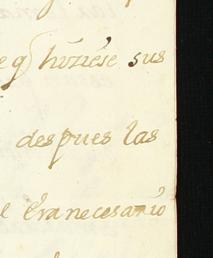 e q̃ hiziése sus
despues las
e Era necesario